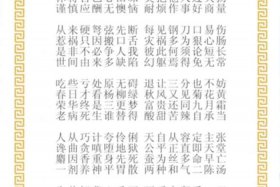 谨慎应酬无懊恼 耐烦作事好商量
从来硬弩弦先断 每见钢刀口易伤
惹祸只因搬口舌 招愆多为狠心肠
是非不必争人我 彼此何须论短长
世事由来多缺陷 幻躯焉得免无常
吃些亏处原无碍 退让三分也不妨
春日才看杨柳绿 秋风又见菊花黄
荣华终是三更梦 富贵还同九月霜
老病死生谁替得 酸甜苦辣自承当
人从巧计夸伶俐 天自从容定主张
谄曲贪嗔堕地狱 公平正直即天堂
麝因香重身先死 蚕为丝多命早亡
一剂养神平胃散 两盅和气二陈汤